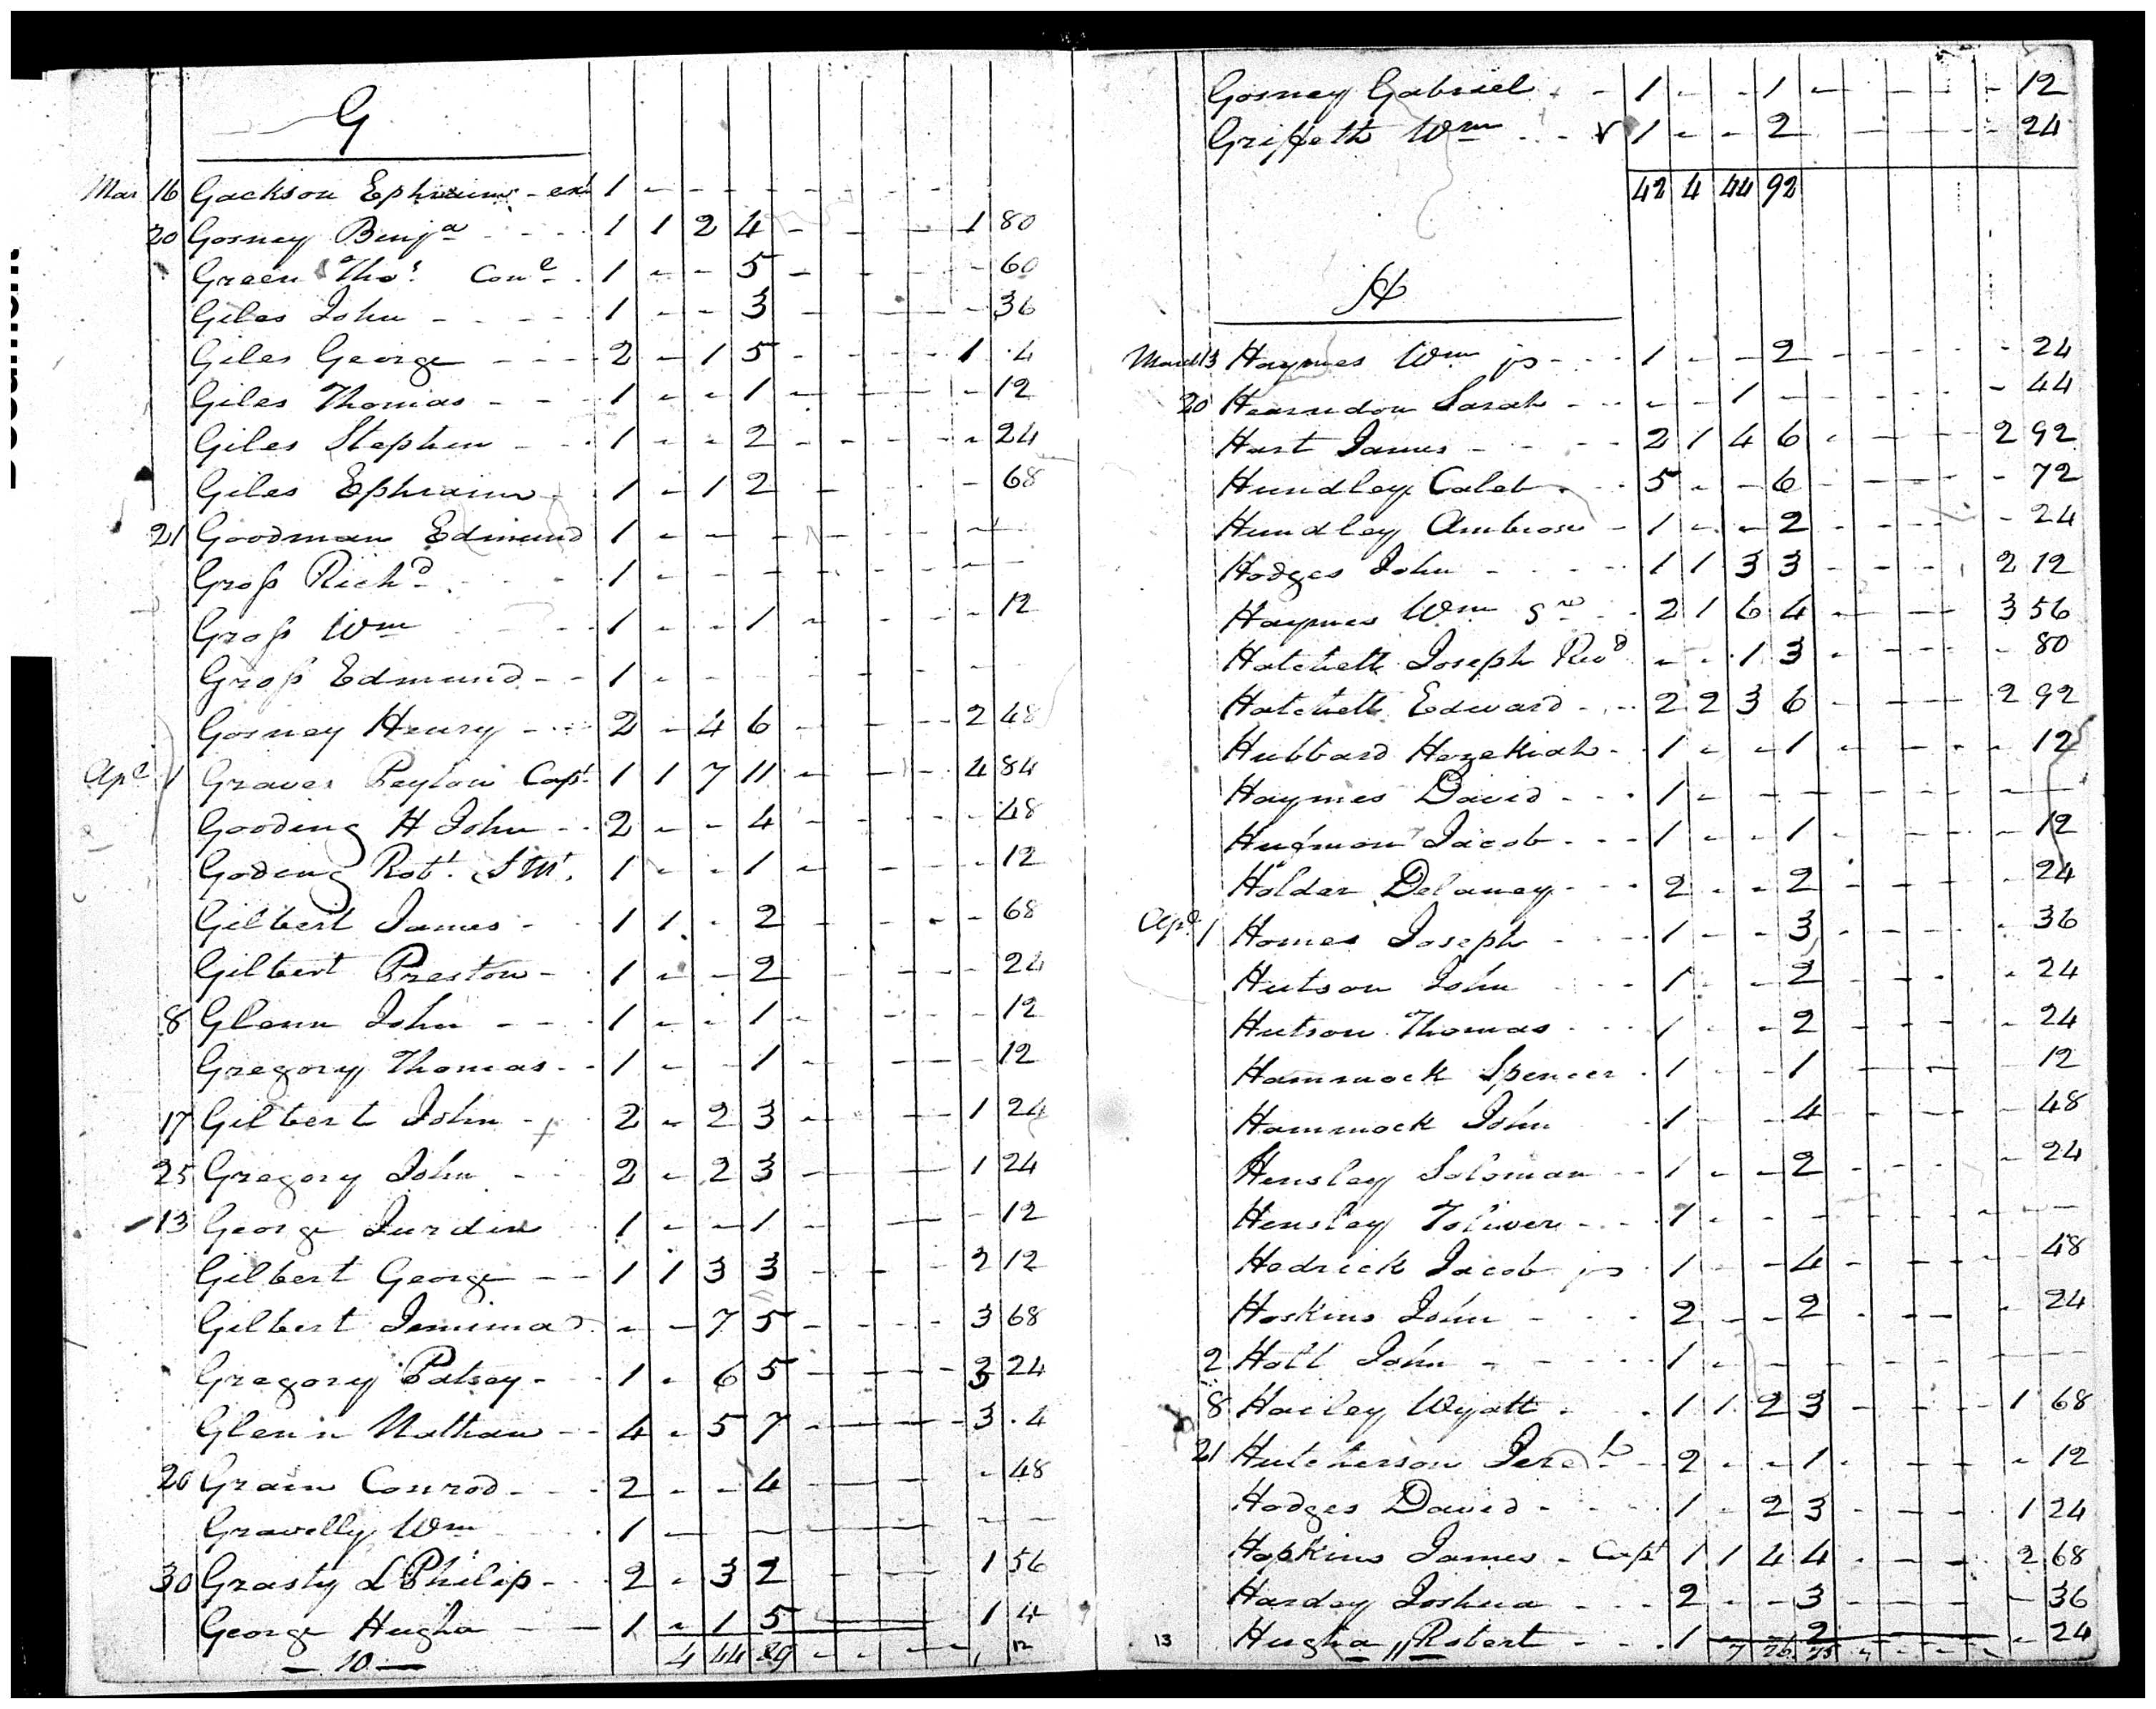 G
Mar 16 Gackson Ephraim - ext 1 - - - - - - -
20 Gosney Benja - - - 1 1 2 4 - - - 1 80
Green Thos. Cone - 1 - - 5 - - - - 60
Giles John - - - - 1 - - 3 - - - - 36
Giles George - - - 2 - 1 5 - - - - 1 .4
Giles Thomas - - - 1 - - 1 - - - - 12
Giles Stephen - - 1 - - 2 - - - - - 24
Giles Ephraim - 1 - 1 2 - - - - 68
21 Goodman Edmund 1 - - - - - - - -
Groſs Richd. - - 1 - - - - - - - -
Groſs Wm - - 1 - - 1 - - - - 12
Groſs Edmund - - 1 - - - - - - -
Gosney Henry - - - 2 - 4 6 - - - - 2 48
Apl. 1 Graves Peyton Capt. 1 1 7 11 - - - 4 84
Gooding H John - - 2 - - 4 - - - - - 48
Goding Robt. S Mt. 1 - - 1 - - - - 12
Gilbert James - 1 1 - 2 - - - - 68
Gilbert Preston - 1 - - 2 - - - - 24
8 Glenn John - - - 1 - - 1 - - - - 12
Gregory Thomas - - 1 - - 1 - - - - 12
17 Gilbert John - 2 - 2 3 - - - 1 24
25 Gregory John - - 2 - 2 3 - - 1 24
13 George Jurdin 1 - - 1 - - - 12
Gilbert George - - 1 1 3 3 - - - 2 12
Gilbert Jemima - - 7 5 - - - - 3 68
Gregory Patsey - - 1 - 6 5 - - - - 3 24
Glenn Nathan - - 4 - 5 7 - - - - 3 .4
26 Grain Conrod - - - 2 - - 4 - - - - 48
Gravelly Wm 1 - - - - - - -
30 Grasty L Philip - - 2 - 3 2 - - - 1 56
George Hugha - - 1 - 1 5 1 4
- 10 - 4 44 89 - - - - 12
Gosney Gabriel - - 1 - - 1 - - - - - 12
Griffeth Wm - - 1 - - 2 - - - - 24
42 4 44 92
H
March 13 Haymes Wm jr - - - 1 - - 2 - - - - - 24
20 Hearndon Sarah - - - - 1 - - - - - 44
Hart James - - - - 2 1 4 6 - - - - 2 92
Hundley Caleb - - 5 - - 6 - - - - - 72
Hundley Ambrose - 1 - - 2 - - - - - 24
Hodges John - - - - 1 1 3 3 - - - 2 12
Haymes Wm Sr - 2 1 6 4 - - - 3 56
Hatchett Joseph Revd. - - 1 3 - - - - 80
Hatchett Edward - - 2 2 3 6 - - - - 2 92
Hubbard Hezekiah - 1 - - 1 - - - - - 12
Haymes David - - - 1 - - - - - - - -
Jacob - - - 1 - - 1 - - - - 12
Holder Delaney - - - 2 - - 2 - - - - - 24
Apl. 1 Homes Joseph - - - 1 - - 3 - - - - 36
Hutson John - - - 1 - - 2 - - - - 24
Hutson Thomas - - - 1 - - 2 - - - - 24
Hammock Spencer - 1 - - 1 - - - 12
Hammock John - 1 - - 4 - - - - 48
Hensley Soloman - - 1 - - 2 - - - - 24
Hensley Toliver - - - 1 - - - - - - - -
Hedrick Jacob jr - 1 - - 4 - - - - - 48
Hoskins John - - - 2 - - 2 - - - - 24
2 Holl John - - - - 1 - - - - - - -
8 Hailey Wyatt - - 1 1 2 3 - - - - 1 68
21 Hutcherson - 2 - - 1 - - - - - 12
Hodges David - - - 1 - 2 3 - - - - 1 24
Hopkins James - Capt 1 1 4 4 - - - 2 68
Harday Joshua - - - 2 - - 3 - - - - 36
13 Hugha " Robert - - - 1 - - 2 - 24
7 26 75 - - - -